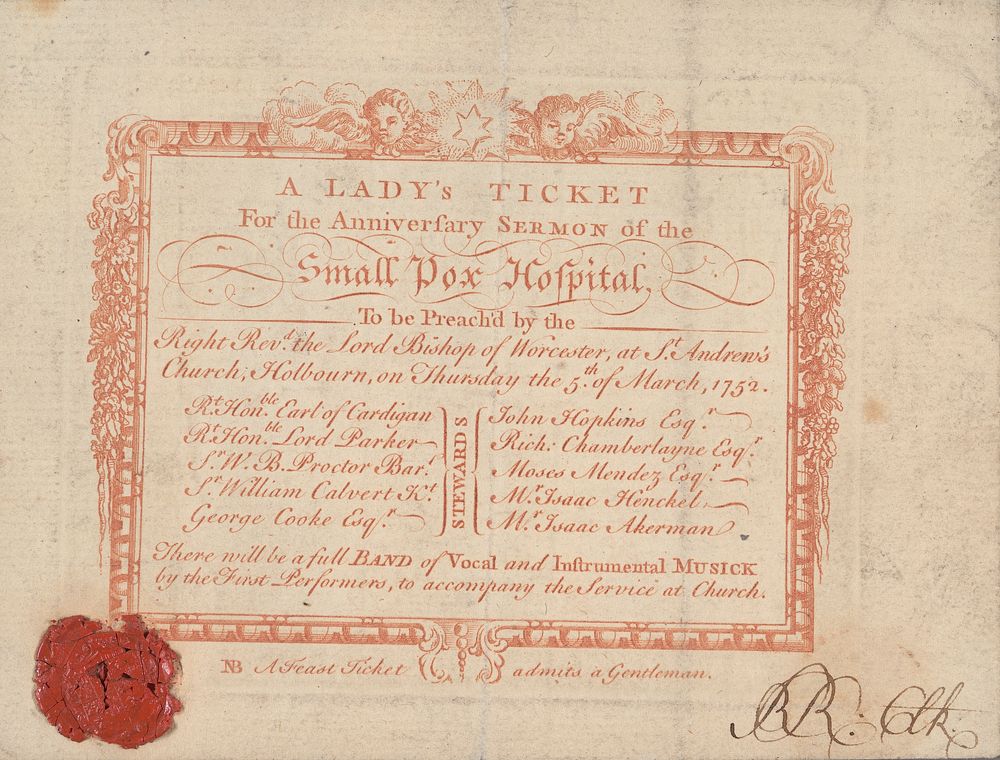 A LADY's TICKET
For the Anniverſary SERMON of the
Small Pox Hoſpital,
To be Preach'd by the
Right Rev.d the Lord Bishop of Worcester, at S.t Andrew's
Church, Holbourn, on Thursday the 5.th of March, 1752.
R.t Hon.ble Earl of Cardigan
R.t Hon.ble Lord Parker
S.r W. B. Proctor Bar.t
S.r William Calvert K.t
George Cooke Esq.r
STEWARDS
John Hopkins Esq.r
Rich: Chamberlayne Esq.r
Moses Mendez Esq.r
M.r Isaac Henckel
M.r Isaac Akerman
There will be a full BAND of Vocal and Inſtrumental MUSICK
by the First Performers, to accompany the Service at Church.
NB A Feast Ticket admits a Gentleman.
BR. Clk.